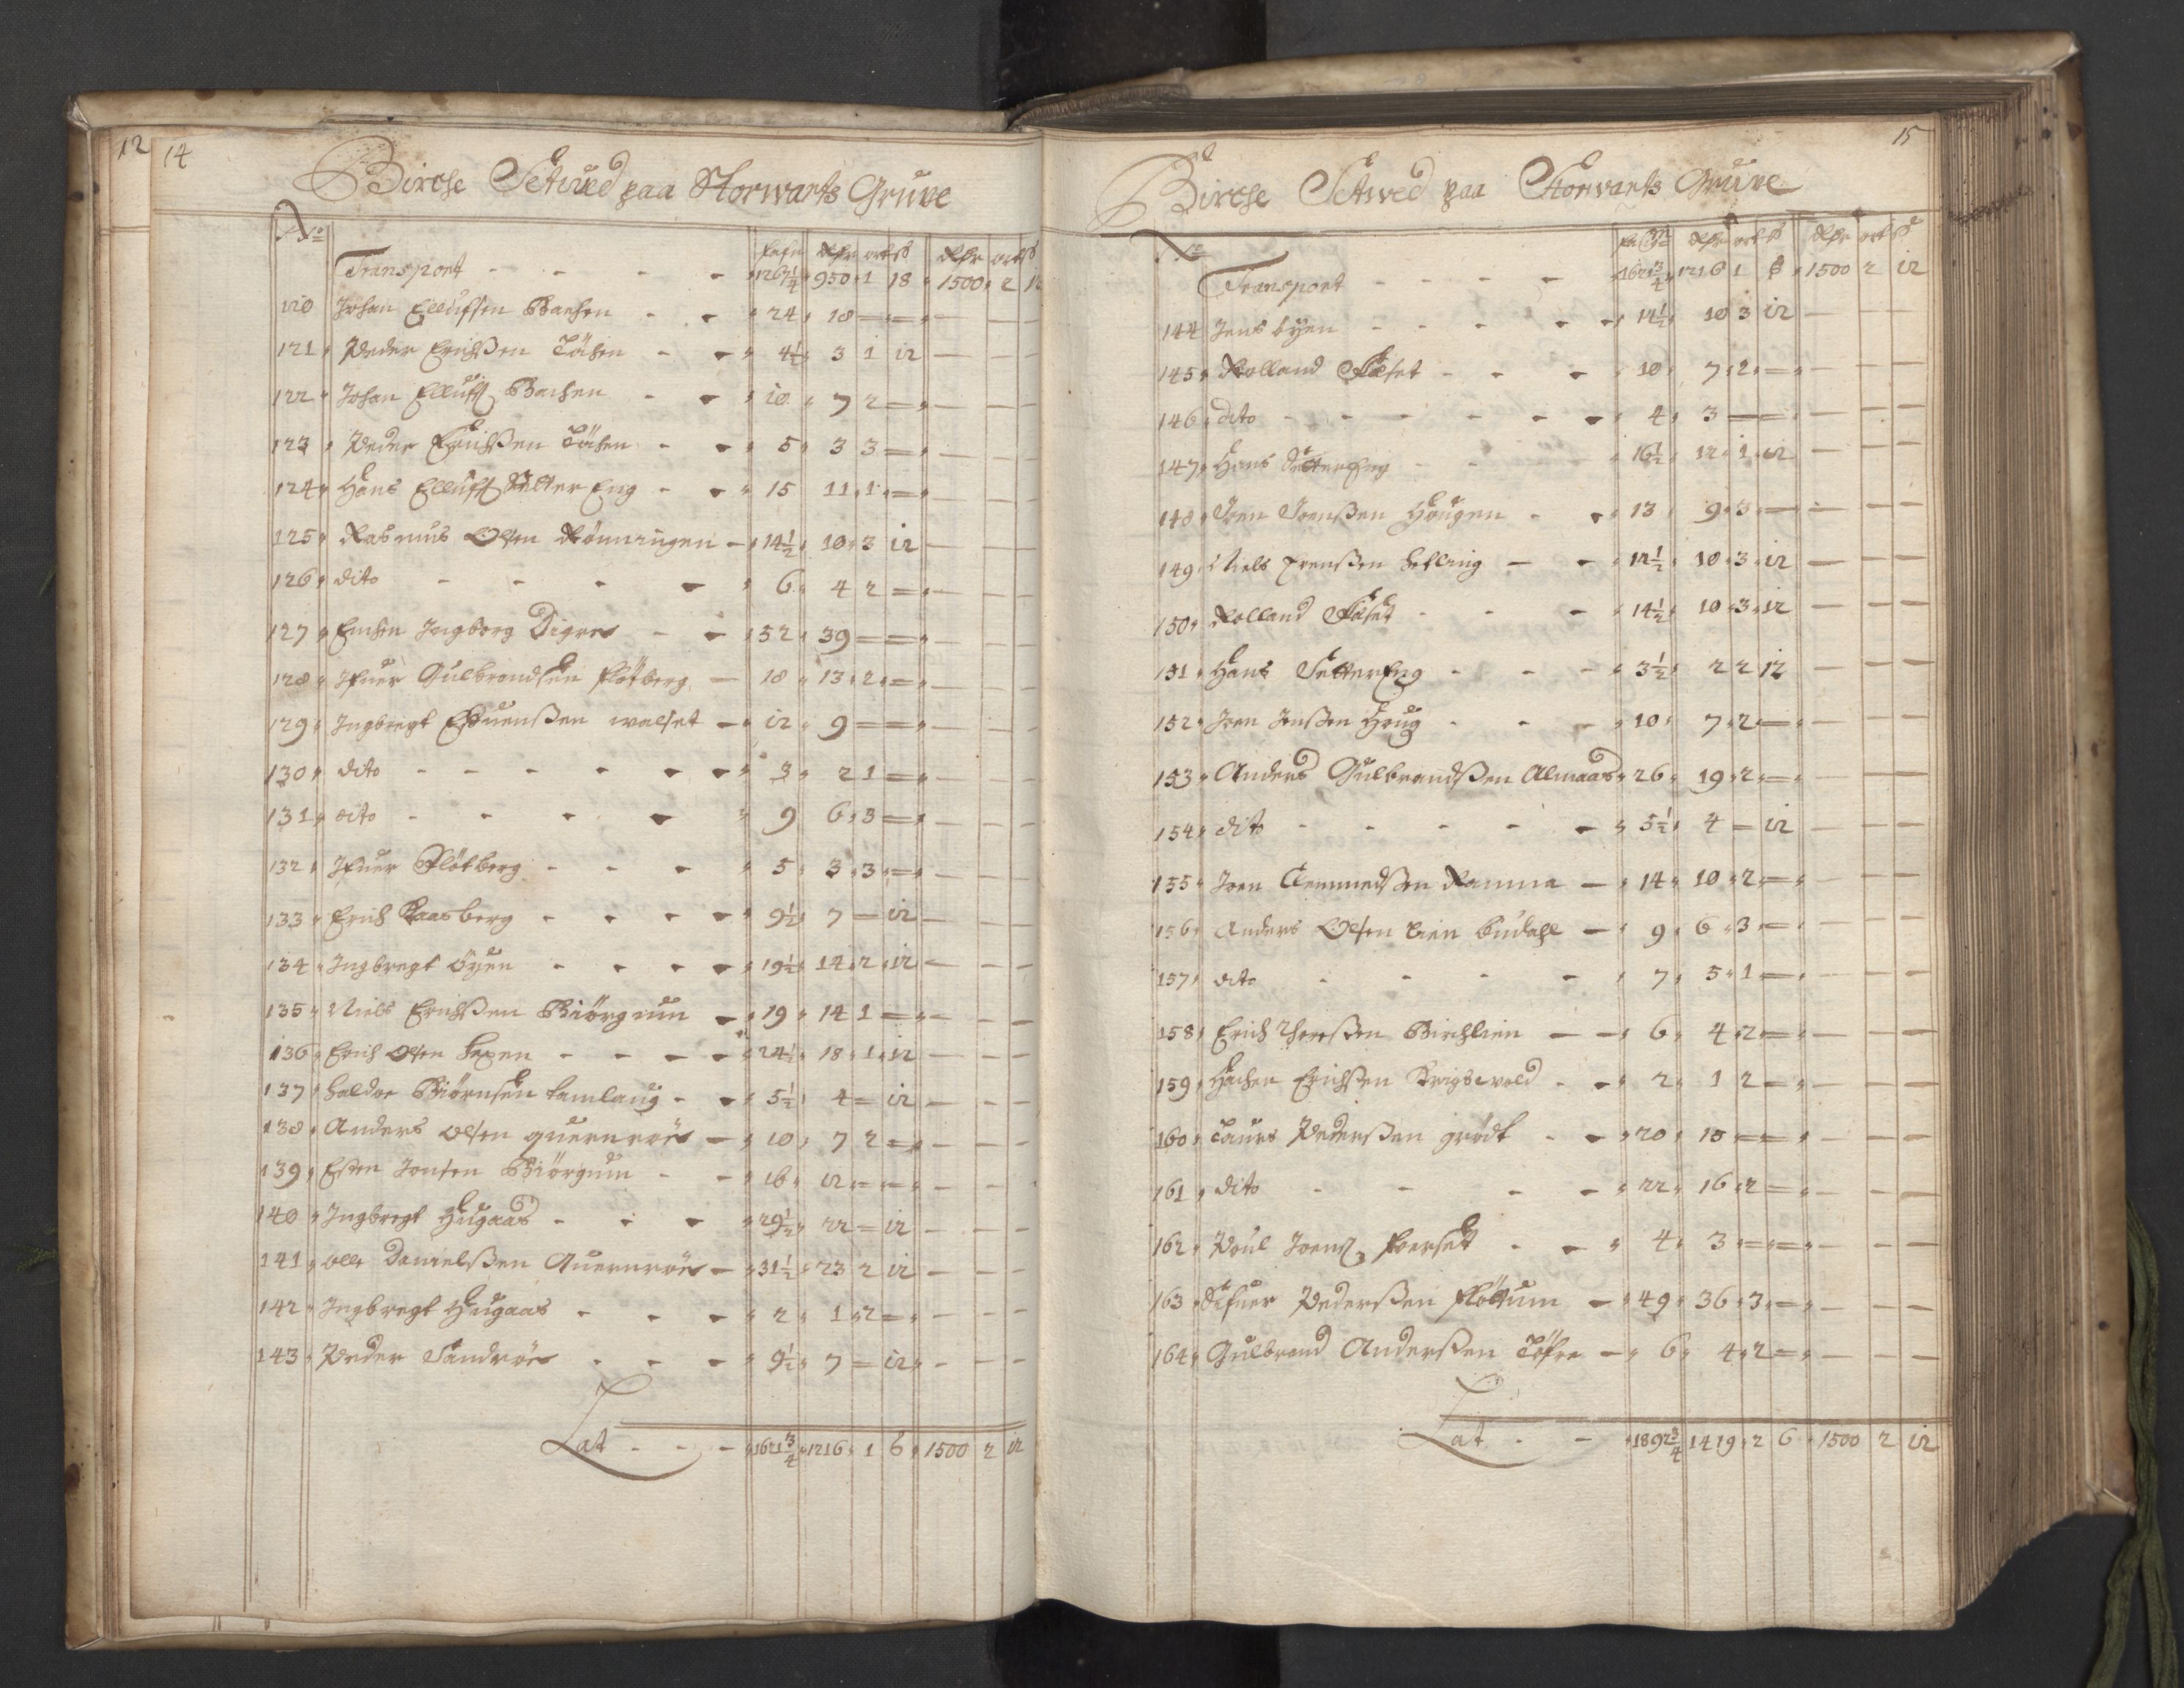 12 14
Birche Setwed paa Storwarts Gruve
No
fafn Rdr ort ß Rdr ort ß
Transport - - - - 1267¼ 950 1 18 1500 2 12
120 Johan Ellufsen Bachen - - 24 18 = = — — —
121 Peder Erichßen - - 4½ 3 1 12 — — —
122 Johan Elluff Bachen - - 10 7 2 = — — —
123 Peder Erichßen - - 5 3 3 = — — —
124 Hans Elluff Setter Eng - - 15 11 1 = — — —
125 Rasmus Olsen Rönningen - 14½ 10 3 12 — — —
126 dito - - - - 6 4 2 = — — —
127 Enchen Ingborg Digres - - 52 39 = = — — —
128 Ifuer Gulbrandsen flötberg - 18 13 2 = — — —
129 Ingbregt Estuensßen walset - 12 9 = = — — —
130 dito - - - - - - 3 2 1 = — — —
131 dito - - - - 9 6 3 = — — —
132 Ifuer Flötberg - - - 5 3 3 = — — —
133 Erich Kaasberg - - - - 9½ 7 — 12 — — —
134 Ingbregt Öyen - - - - 19½ 14 2 12 — — —
135 Niels Erichßen Biörgum - 19 14 1 = — — —
136 Erich Olsen hexen - - - - 24½ 18 1 12 — — —
137 haldor Biörnsen tamlaug - - 5½ 4 = 12 — — —
138 Anders olsen quernröes - 10 7 2 = — — —
139 Esten Jonsen Biörgum - - 16 12 = = — — —
140 Ingbregt Hugaas - - - 29½ 22 = 12 — — —
141 olle Danielßen Quernröes - 31½ 23 2 12 — — —
142 Ingbregt Hugaas - - - 2 1 2 = — — —
143 Peder Sandröes - - - 9½ 7 = 12 - — —
Lat - - - 1621¾ 1216 1 6 1500 2 12
15
Birche Setwed paa Storwarts Gruve
No
Rdr ort ß Rdr ort ß
Transport - - - - 1621¾ 1216 1 6 1500 2 12
144 Jens byen - - - - - 14½ 10 3 12 — — —
145 Rolland Fåset - - - 10 7 2 — — — —
146 dito - - - - - - 4 3 — — — — —
147 Hans Setter Eng - - 16½ 12 1 12 — — —
148 Joen Joensßen Hougen - - 13 9 3 — — — —
149 Niels hefling — - 14½ 10 3 12 — — —
150 Rolland Fåset - - - 14½ 10 3 12 — — —
151 Hans Setter Eng - - - 3½ 2 2 12 — — —
152 Joen Jensßen Houg - - - 10 7 2 — — — —
153 Anders Gulbrandßen Almaas 26 19 2 — — — —
154 dito - - - - - 5½ 4 — 12 — — —
155 Joen Clemmedßen Ramma — 14 10 2 — — — —
156 Anders Olsen Lien budahl — 9 6 3 — — — —
157 dito - - - - 7 5 1 — — — —
158 Erich Birchlien — - 6 4 2 = — — —
159 Hachen Erichßen Krigsvold - - 2 1 2 = — — —
160 Laurs Pedersßen grödt - - 20 15 = = — — —
161 dito - - - - 22 16 2 = — — —
162 Poul Joens foerset - - 4 3 = = — — —
163 Sifuer Pedersßen flöttum - 49 36 3 — — — —
164 Gulbrand Andersßen - 6 4 2 = — — —
Lat - - 1892¾ 1419 2 6 1500 2 12